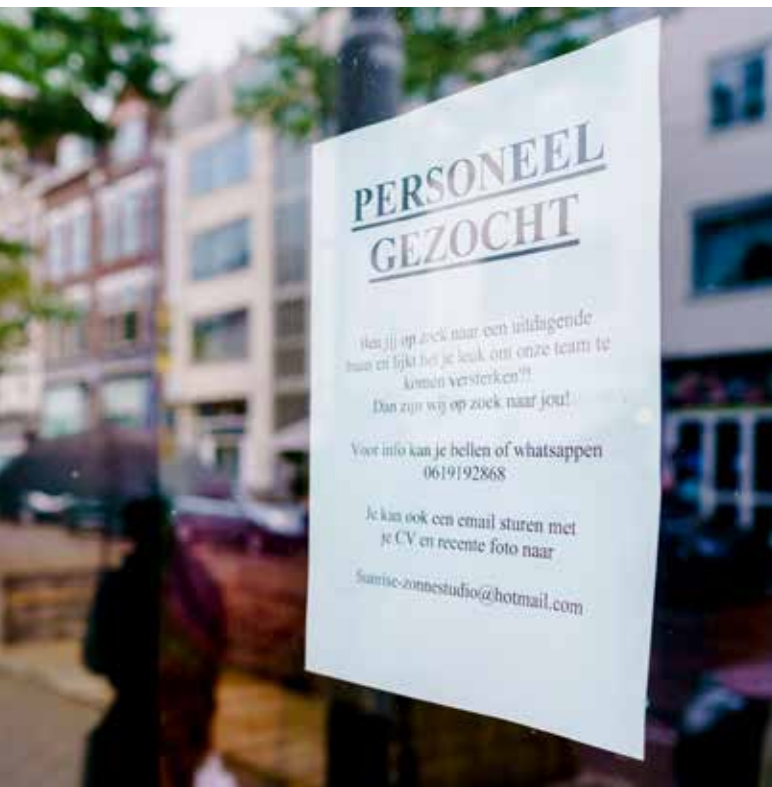 PERSONEEL
GEZOCHT
Ben jij op zoek naar een uitdagende
baan en lijkt het je leuk om onze team te
komen versterken?!
Dan zijn wij op zoek naar jou!
Voor info kan je bellen of whatsappen
0619192868
Je kan ook een email sturen met
je CV en recente foto naar
Sunrise-zonnestudio@hotmail.com